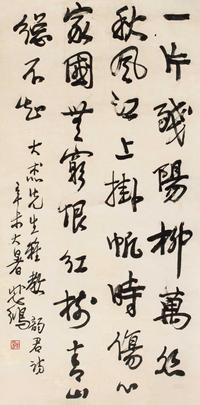 一片残陽柳萬絲
秋風江上掛帆時傷心
家國無窮恨紅樹青山
總不知
大杰先生雅教 韻君詩
辛未大暑 悲鴻